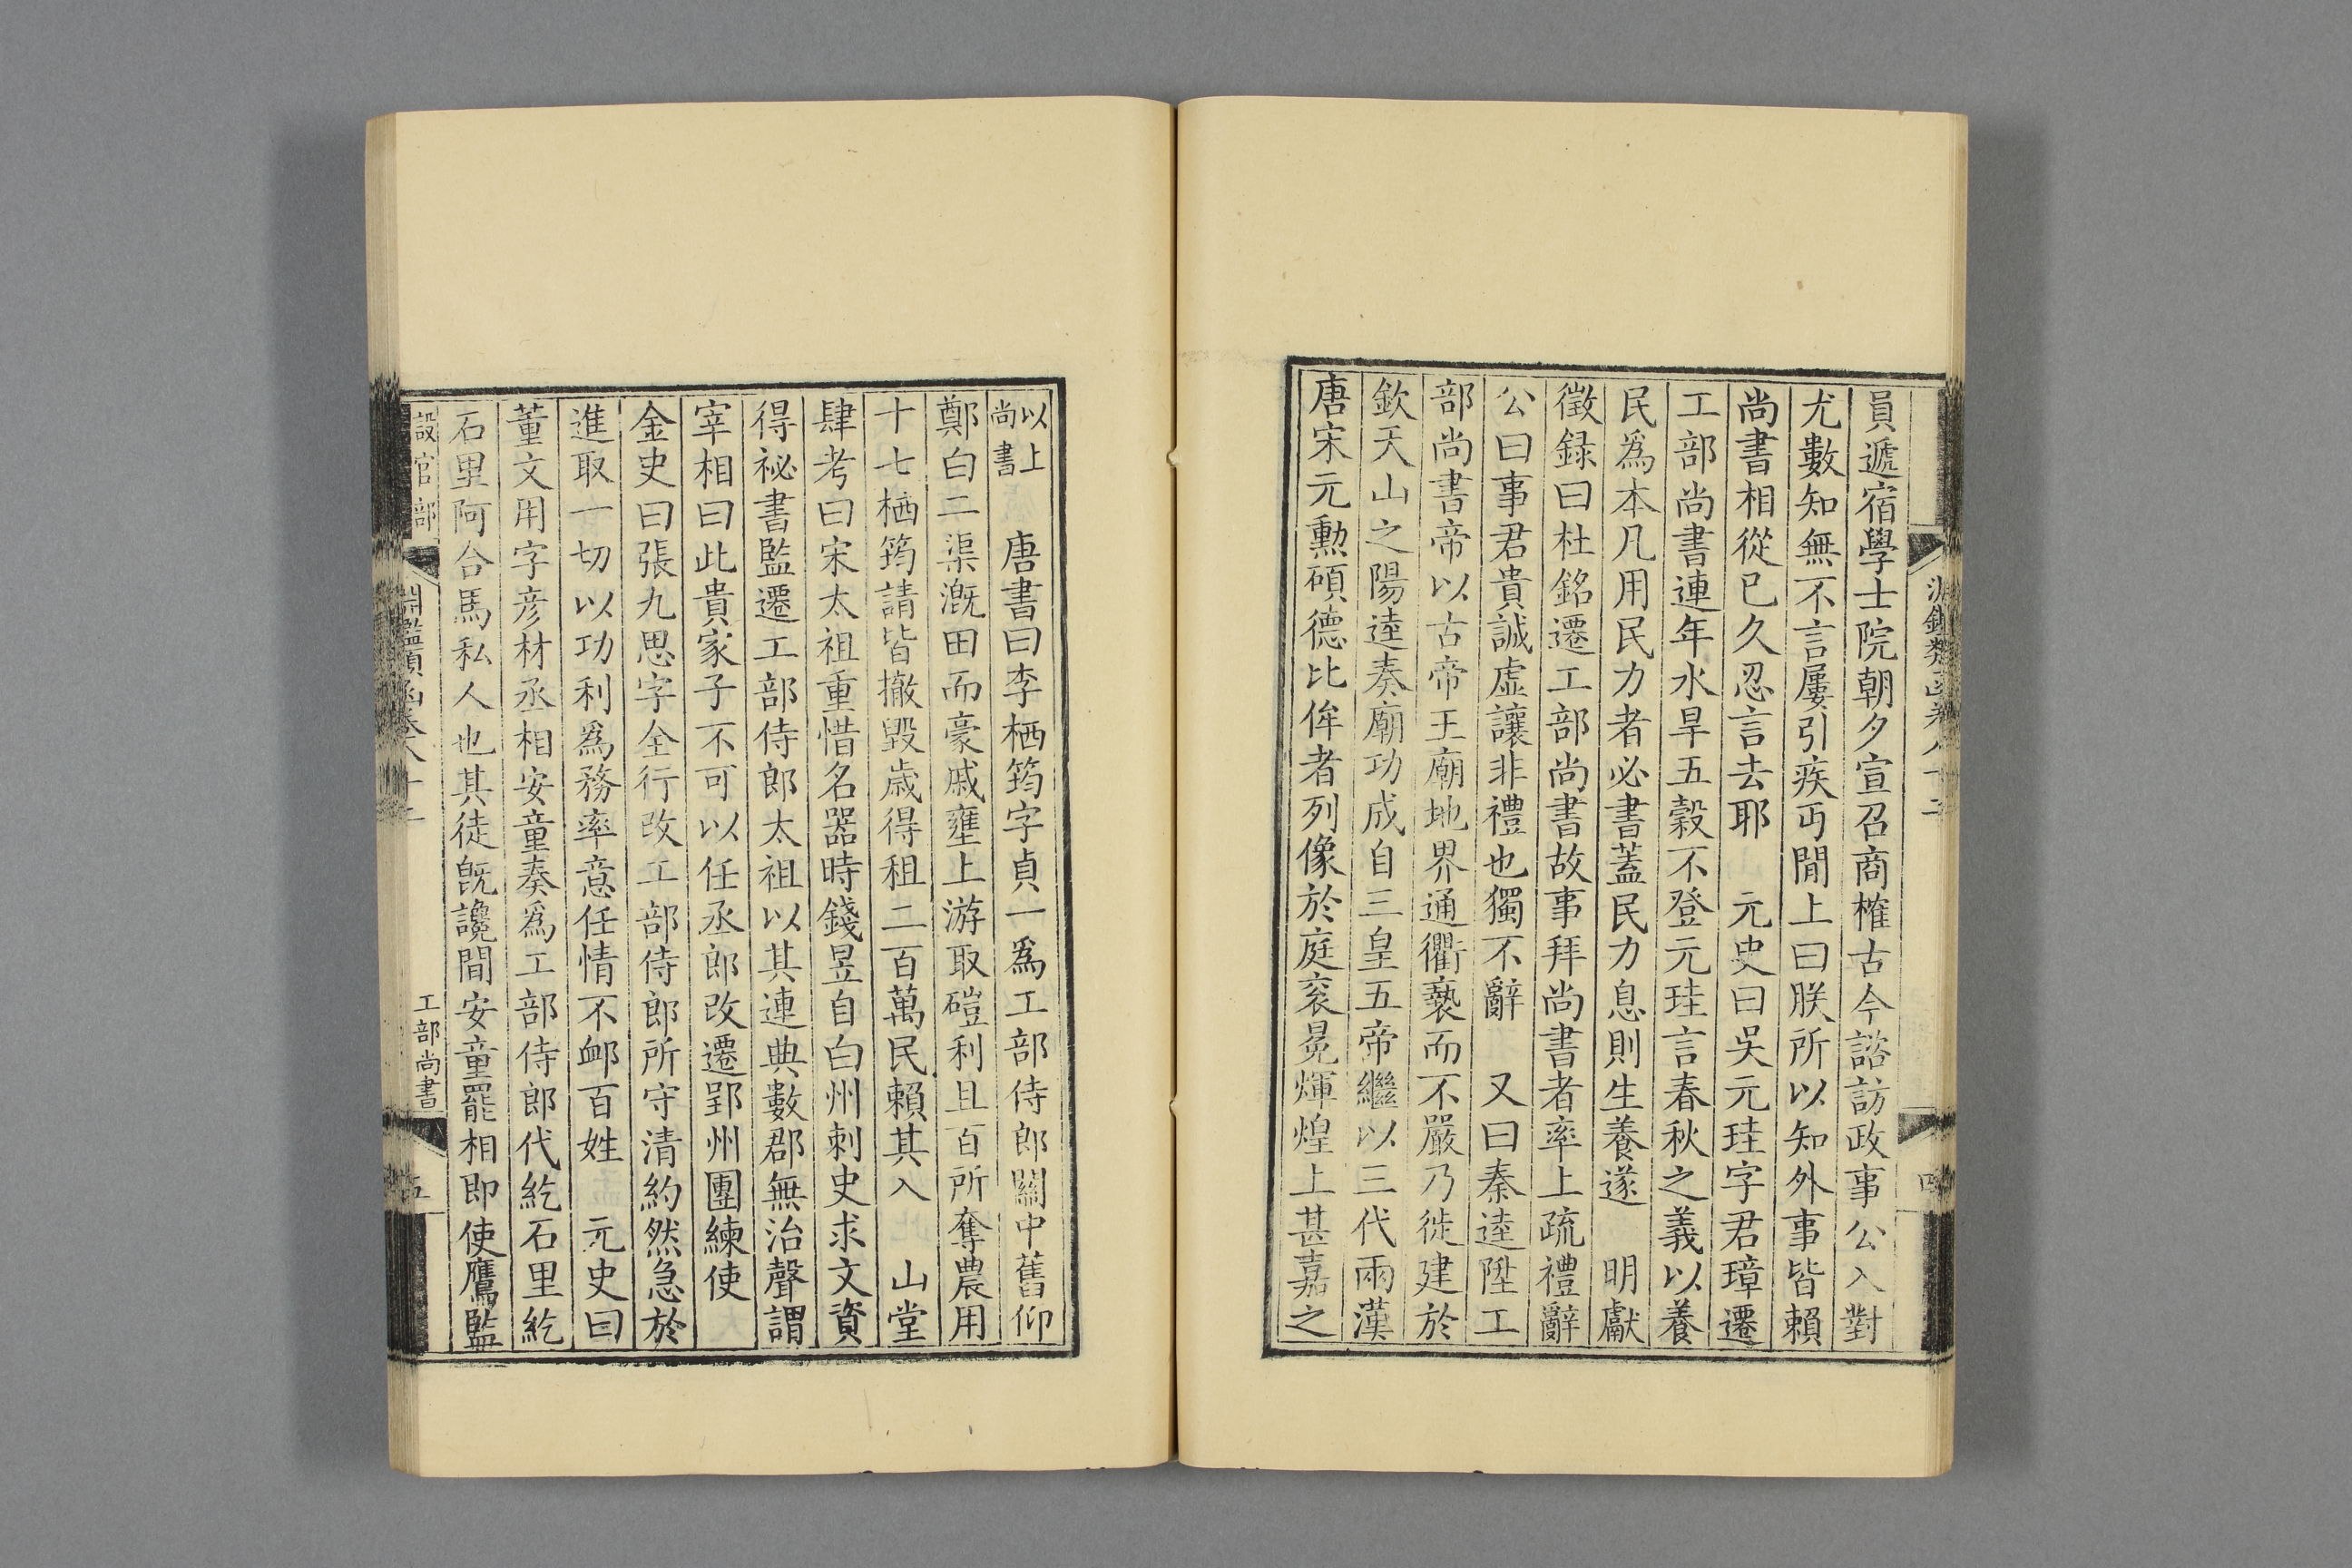 員遞宿學士院朝夕宣召商榷古今諮訪政事公入對
尤數知無不言屢引疾丐閒上曰朕所以知外事皆賴
尚書相從已久忍言去耶 元史曰吳元珪字君璋遷
工部尚書連年水旱五穀不登元珪言春秋之義以養
民爲本凡用民力者必書蓋民力息則生養遂 明獻
徵録曰杜銘遷工部尚書故事拜尚書者率上疏禮辭
公曰事君貴誠虛讓非禮也獨不辭 又曰秦逵陞工
部尚書帝以古帝王廟地界通衢褻而不嚴乃徙建於
欽天山之陽逵奏廟功成自三皇五帝繼以三代兩漢
唐宋元勲碩德比侔者列像於庭袞冕煇煌上甚嘉之
以上
尚書
唐書曰李栖筠字貞一爲工部侍郎關中舊仰
鄭白二渠溉田而豪戚壅上游取磑利且百所奪農用
十七栖筠請皆撤毀歲得租二百萬民賴其入 山堂
肆考曰宋太祖重惜名器時錢昱自白州刺史求文資
得祕書監遷工部侍郎太祖以其連典數郡無治聲謂
宰相曰此貴家子不可以任丞郎改遷郢州團練使
金史曰張九思字全行改工部侍郎所守清約然急於
進取一切以功利爲務率意任情不卹百姓 元史曰
董文用字彥材丞相安童奏爲工部侍郎代紇石里紇
石里阿合馬私人也其徒旣讒間安童罷相即使鷹監
設官部
淵鑑類函卷八十二
工部尚書
五